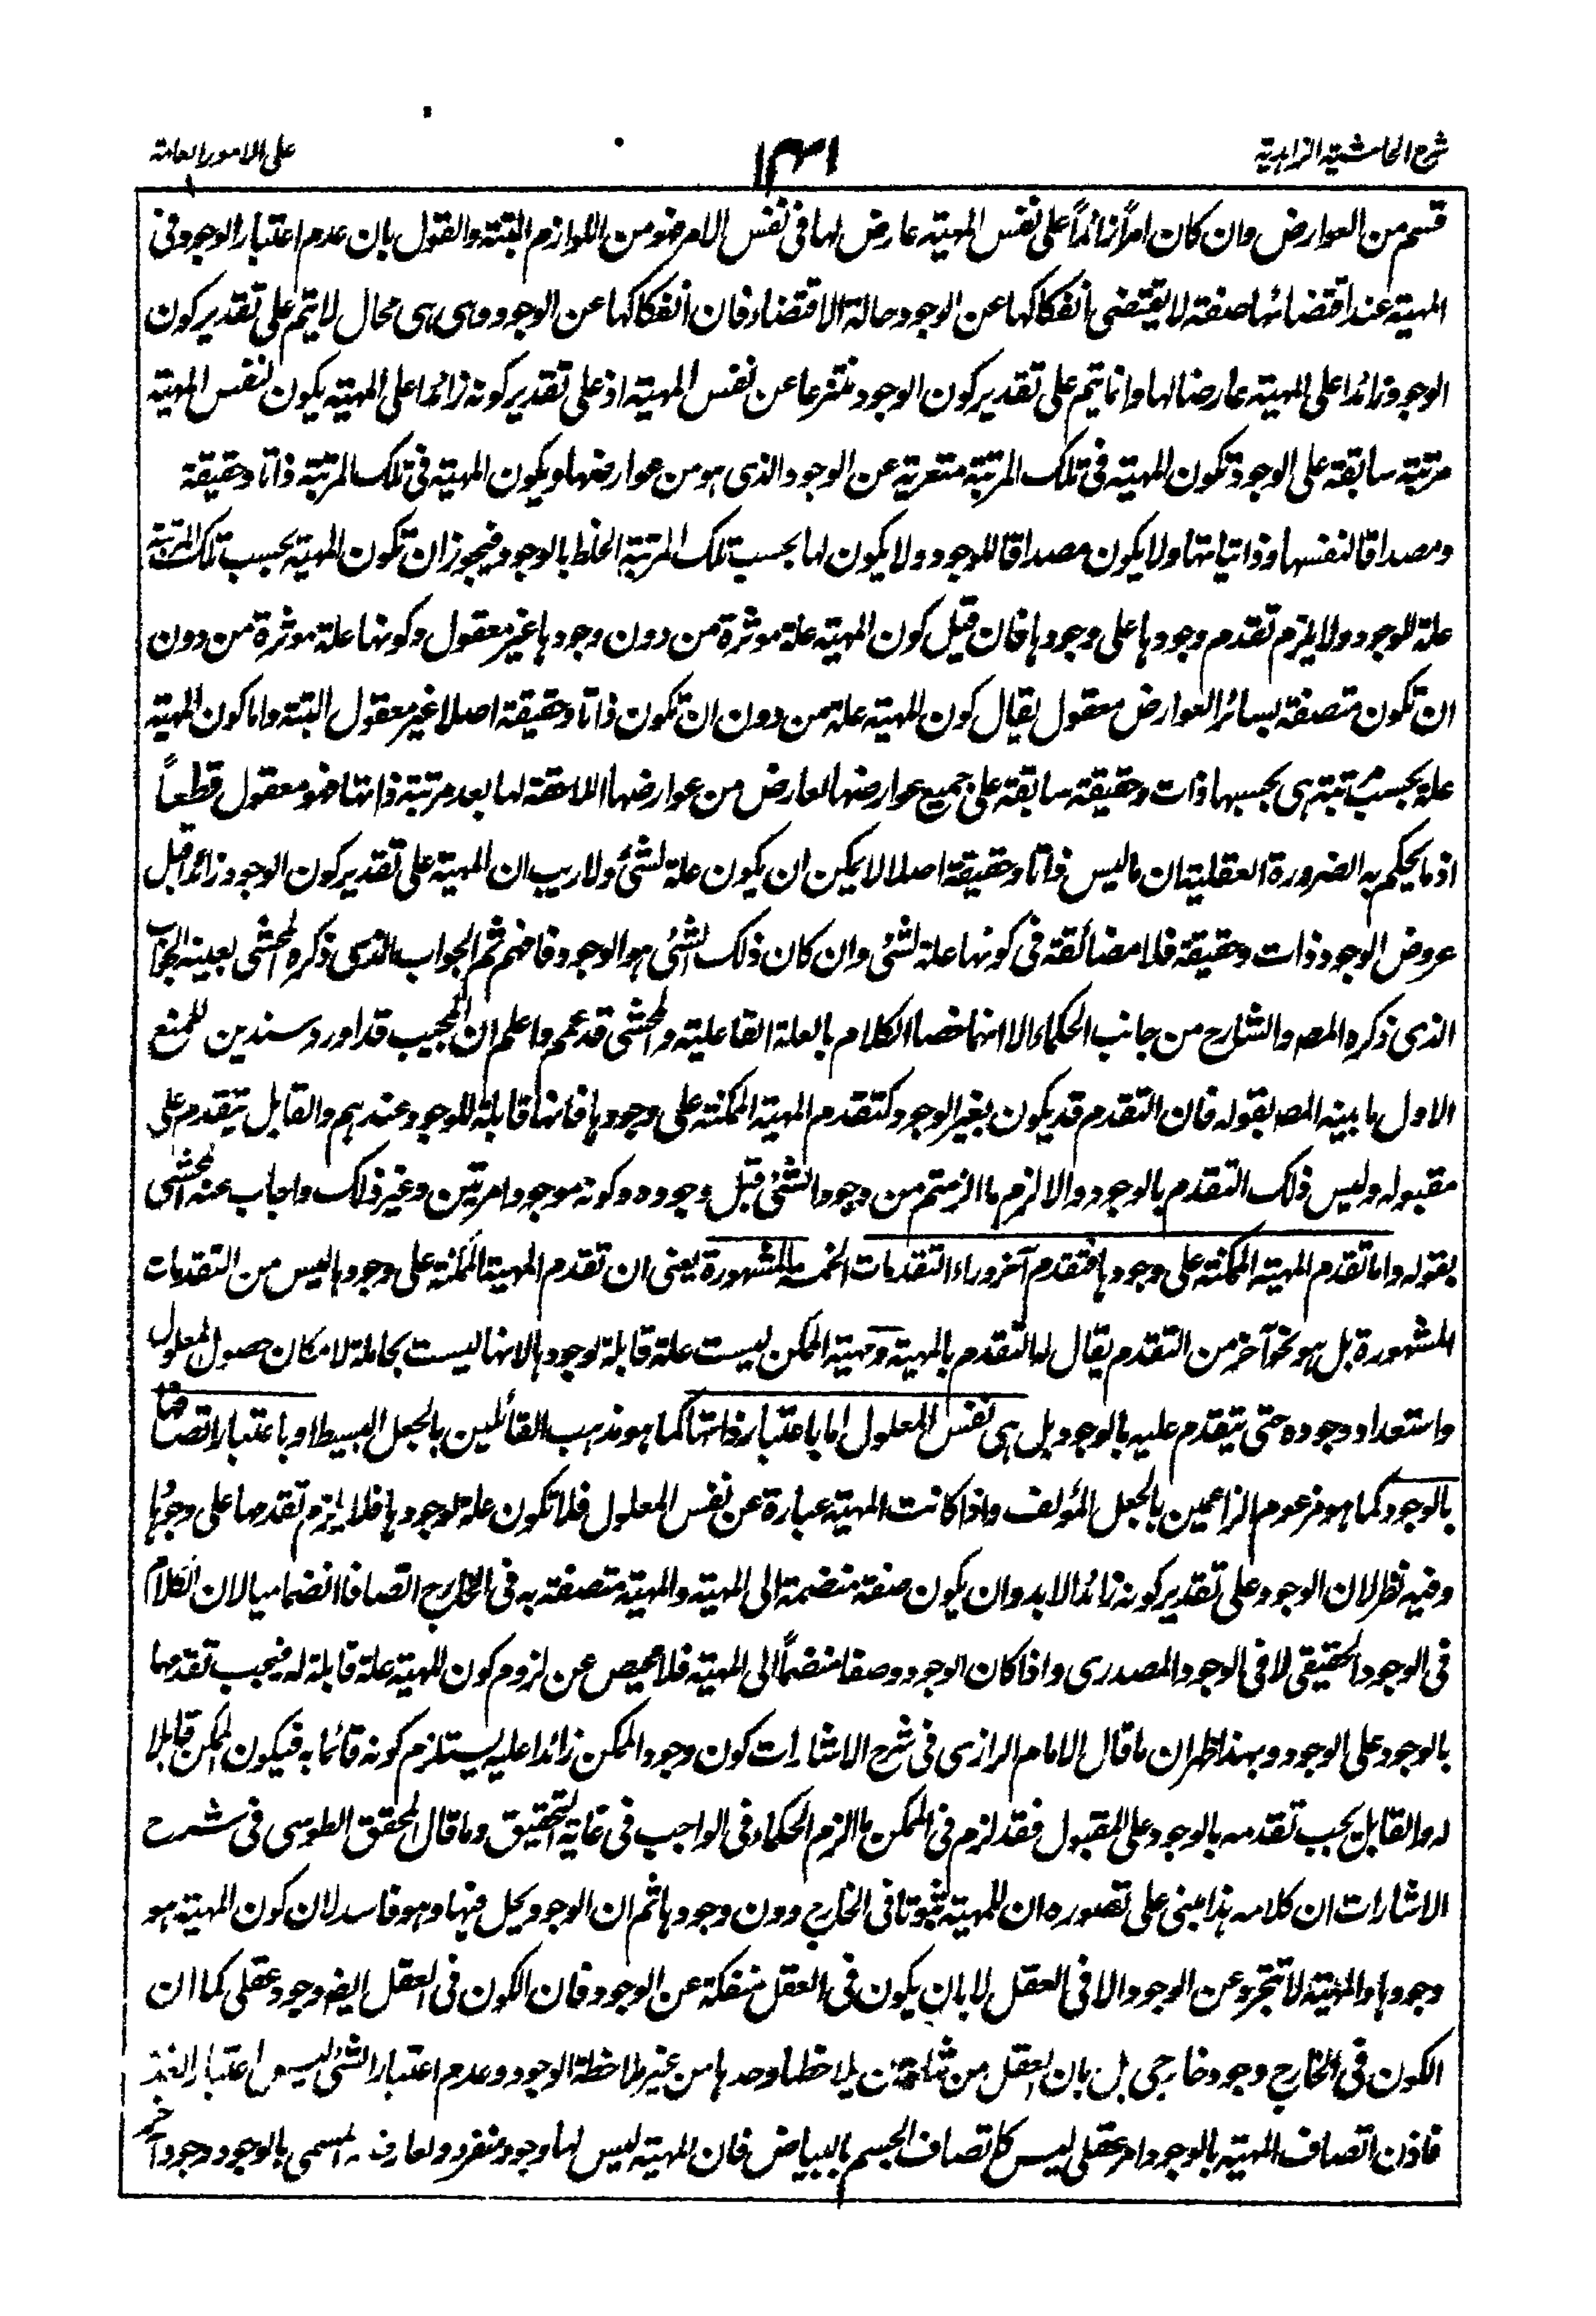 شرح الحاشية الزاهدية
١٣١
على الامور العامة
قسم من العوارض وان كان امراً زائداً على نفس المهية عارض لها فى نفس الامر فهو من اللوازم البتة والقول بان عدم اعتبار الوجود فى
المهية عند اقتضائها صفة لا يقتضى بانفكاكها عن الوجود حالة الاقتضاء فان انفكاكها عن الوجود وهى هى محال لا يتم على تقدير كون
الوجود زائدا على المهية عارضا لها وانما يتم على تقدير كون الوجود منتزعا عن نفس المهية اذ على تقدير كونه زائدا على المهية يكون لنفس المهية
مرتبة سابقة على الوجود تكون المهية فى تلك المرتبة متعرية عن الوجود الذى هو من عوارضها ويكون المهية فى تلك المرتبة ذاتا وحقيقة
ومصداقا لنفسها وذاتياتها ولا يكون مصداقا للوجود ولا يكون لها بحسب تلك المرتبة الخلط بالوجود فيجوز ان تكون المهية بحسب تلك المرتبة
علة للوجود ولا يلزم تقدم وجودها على وجودها فان قيل كون المهية علة موثرة من دون وجودها غير معقول وكونها علة موثرة من دون
ان تكون متصفة بسائر العوارض معقول يقال كون المهية علة من دون ان تكون ذاتا وحقيقة اصلا غير معقول البتة واما كون المهية
علة بحسب مرتبة هى بحسبها ذات وحقيقة سابقة على جميع عوارضها لعارض من عوارضها اللاحقة لها بعد مرتبة ذاتها فهو معقول قطعاً
اذ ما يحكم به الضرورة العقلية ان ما ليس ذاتا وحقيقة اصلا لا يمكن ان يكون علة لشئ ولا ريب ان المهية على تقدير كون الوجود زائدا قبل
عروض الوجود ذات وحقيقة فلا مضائقة فى كونها علة لشئ وان كان ذلك الشئ هو الوجود فافهم ثم الجواب الذى ذكره المحشى بعينه الجواب
الذى ذكره المصـ والشارح من جانب الحكماء الا انهما خصا الكلام بالعلة الفاعلية والمحشى قد عمم واعلم ان المجيب قد اورد سندين للمنع
الاول ما بينه المصـ بقوله فان التقدم قد يكون بغير الوجود كتقدم المهية الممكنة على وجودها فانها قابلة للوجود عندهم والقابل يتقدم على
مقبوله وليس ذلك التقدم بالوجود والا لزم ما الزمتم من وجود الشئ قبل وجوده وكونه موجودا مرتين وغير ذلك واجاب عنه المحشى
بقوله واما تقدم المهية الممكنة على وجودها فتقدم آخر وراء التقدمات الخمسة المشهورة يعنى ان تقدم المهية الممكنة على وجودها ليس من التقدمات
المشهورة بل هو نحو آخر من التقدم يقال له التقدم بالمهية ومهية الممكن ليست علة قابلة لوجودها لانها ليست بحاملة لامكان حصول المعلول
واستعداد وجوده حتى يتقدم عليه بالوجود بل هى نفس المعلول اما باعتبار ذاتها كما هو مذهب القائلين بالجعل البسيط او باعتبار اتصافها
بالوجود كما هو مزعوم الزاعمين بالجعل المؤلف واذا كانت المهية عبارة عن نفس المعلول فلا تكون علة لوجودها فلا يلزم تقدمها على وجودها
وفيه نظر لان الوجود على تقدير كونه زائدا لابد وان يكون صفة منضمة الى المهية والمهية متصفة به فى الخارج اتصافا انضماميا لان الكلام
فى الوجود الحقيقى لا فى الوجود المصدرى واذا كان الوجود وصفا منضماً الى المهية فلا محيص عن لزوم كون المهية علة قابلة له فيجب تقدمها
بالوجود على الوجود وبهذا ظهر ان ما قال الامام الرازى فى شرح الاشارات كون وجود الممكن زائدا عليه يستلزم كونه قائما به فيكون الممكن قابلا
له والقابل يجب تقدمه بالوجود على المقبول فقد لزم فى الممكن ما الزم الحكماء فى الواجب فى غاية التحقيق وما قال المحقق الطوسى فى شرح
الاشارات ان كلامه هذا مبنى على تصوره ان للمهية ثبوتا فى الخارج دون وجودها ثم ان الوجود يحل فيها وهو فاسد لان كون المهية هو
وجودها والمهية لا تتجرد عن الوجود الا فى العقل لا بان يكون فى العقل منفكة عن الوجود فان الكون فى العقل ايضـ وجود عقلى كما ان
الكون فى الخارج وجود خارجى بل بان العقل من شانه ان يلاحظها وحدها من غير ملاحظة الوجود وعدم اعتبار الشئ ليس اعتبار العدمه
فاذن اتصاف المهية بالوجود امر عقلى ليس كاتصاف الجسم بالبياض فان المهية ليس لها وجود منفرد ولعارضه المسمى بالوجود وجود آخر